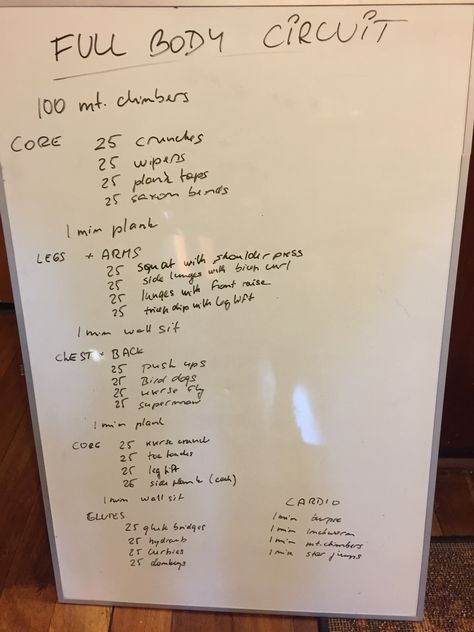 FULL BODY CIRCUIT
100 mt. climbers
CORE 25 crunches
25 wipers
25 plank taps
25 saxon bends
1 min plank
LEGS + ARMS
25 squat with shoulder press
25 side lunges with bicep curl
25 lunges with front raise
25 tricep dip with leg lift
1 min wall sit
CHEST + BACK
25 push ups
25 Bird dogs
25 reverse fly
25 superman
1 min plank
CORE 25 reverse crunch
25 toe touches
25 leg lift
25 side plank (each)
1 min wall sit
GLUTES
25 glute bridges
25 hydrant
25
25 donkeys
CARDIO
1 min burpee
1 min inchworm
1 min mt. climbers
1 min star jumps